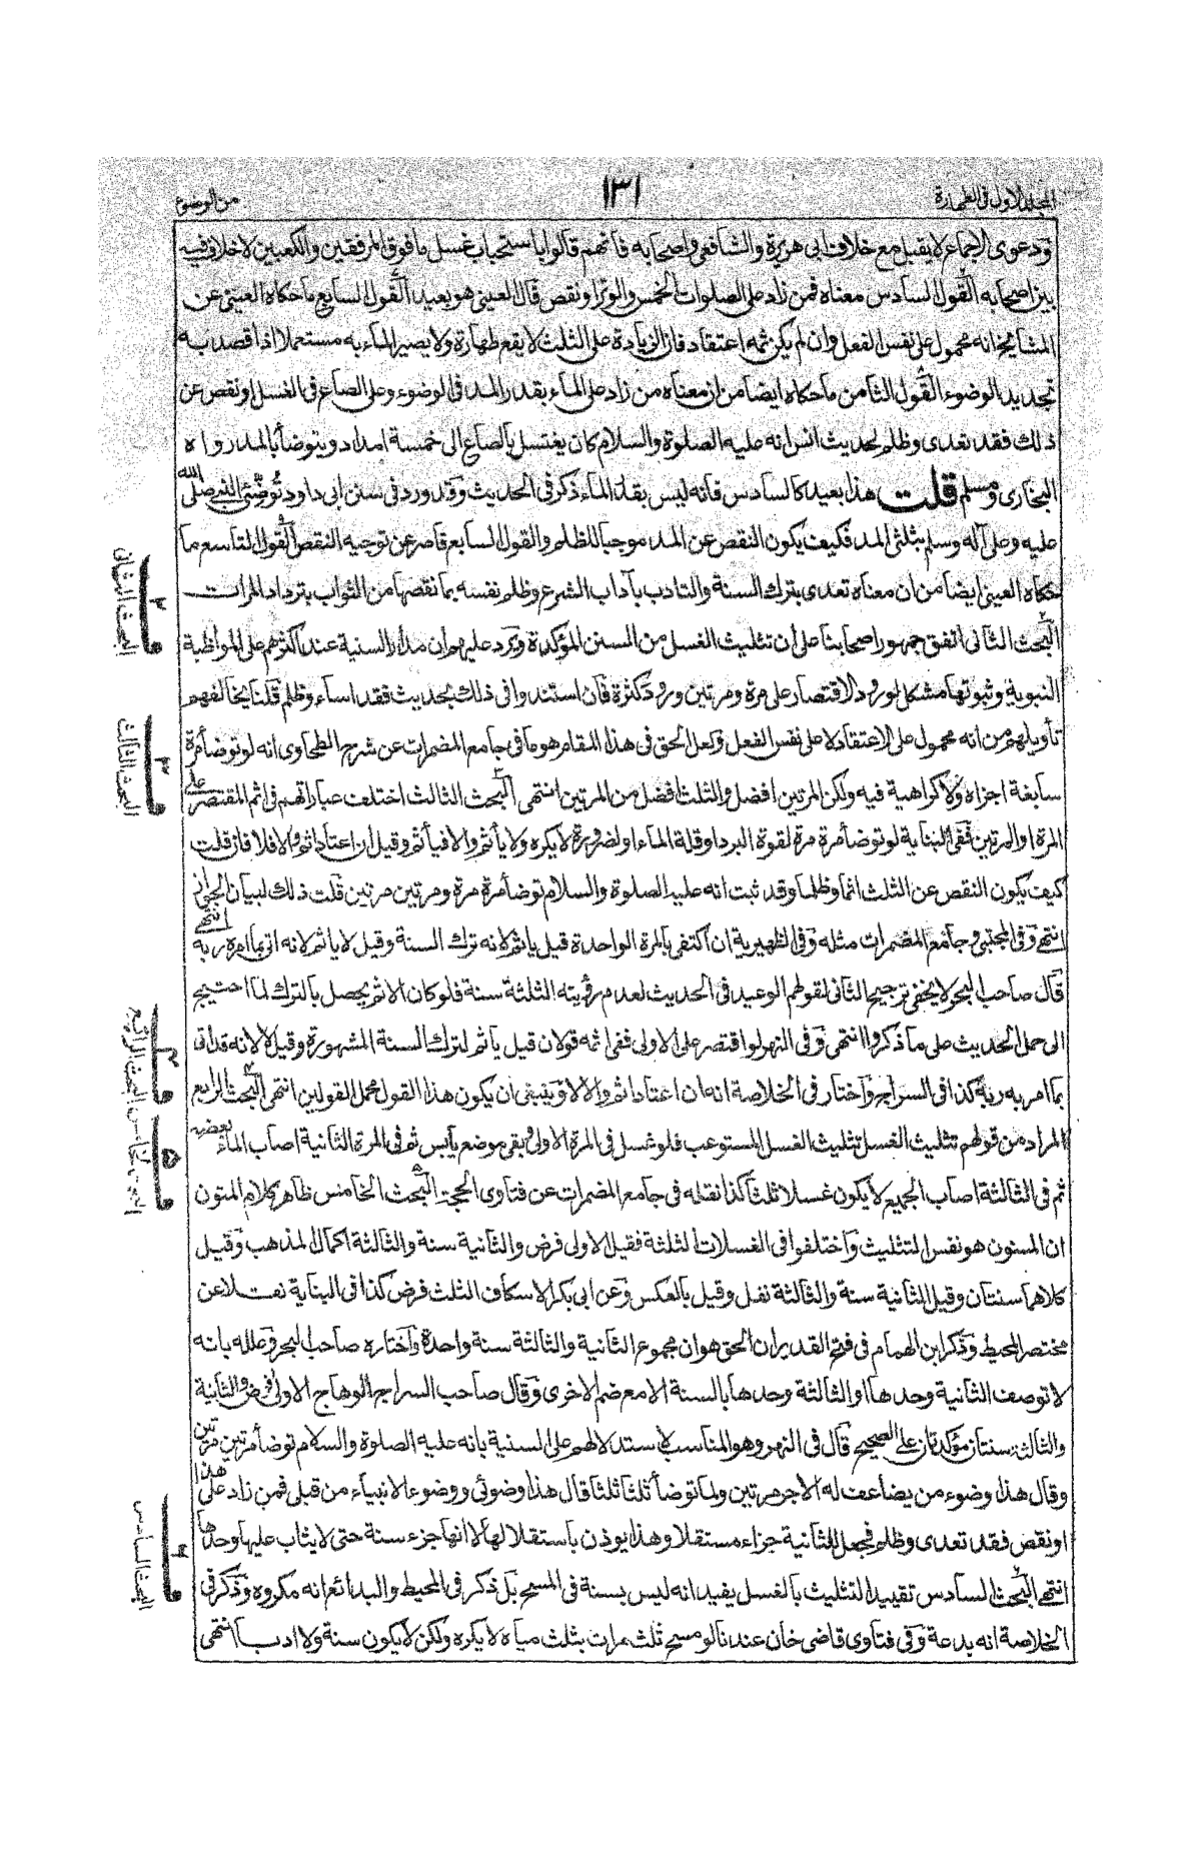 المجلد الاول فى الطهارة
١٣١
من الوضوء
ودعوى الاجماع لا يقبل مع خلاف ابى هريرة والشافعى واصحابه فانهم قالوا باستحباب غسل ما فوق المرفقين والكعبين لا خلاف فيه
بين اصحابه القول السادس معناه فمن زاد على الصلوات الخمس والوتر او نقص قال العينى هو بعيد القول السابع ما حكاه العينى عن
المشايخ انه محمول على نفس الفعل وان لم يكن ثمه اعتقاد فان الزيادة على الثلث لا يقع طهارة ولا يصير الماء به مستعملا اذا قصد به
تجديد الوضوء القول الثامن ما حكاه ايضا من ان معناه من زاد على الماء بقدر المد فى الوضوء وعلى الصاع فى الغسل او نقص عن
ذلك فقد تعدى وظلم لحديث انس انه عليه الصلوة والسلام كان يغتسل بالصاع الى خمسة امداد ويتوضأ بالمد رواه
البخارى ومسلم قلت هذا بعيد كالسادس فانه ليس بقدر الماء ذكر فى الحديث وقد ورد فى سنن ابى داود توضئ النبى صلى الله
عليه وعلى آله وسلم بثلثى المد فكيف يكون النقص عن المد موجبا للظلم والقول السابع قاصر عن توجيه النقص القول التاسع ما
حكاه العينى ايضا من ان معناه تعدى بترك السنة والتادب بآداب الشرع وظلم نفسه بما نقصها من الثواب بترداد المرات
البحث الثانى اتفق جمهور اصحابنا على ان تثليث الغسل من السنن المؤكدة ويرد عليهم ان مدار السنية عند اكثرهم على المواظبة
النبوية وثبوتها مشكل لورود الاقتصار على مرة ومرتين ورود كثرة فان استندوا فى ذلك بحديث فقد اساء وظلم قلنا يخالفهم
تأويلهم من انه محمول على الاعتقاد لا على نفس الفعل ولعل الحق فى هذا المقام هو ما فى جامع المضمرات عن شرح الطحاوى انه لو توضأ مرة
سابغة اجزاه ولا كراهية فيه ولكن المرتين افضل والثلث افضل من المرتين انتهى البحث الثالث اختلفت عباراتهم فى اثم المقتصر على
المرة او المرتين ففى البناية لو توضأ مرة مرة لقوة البرد او قلة الماء او لضرورة لا يكره ولا يأثم والا فيأثم وقيل ان اعتاد اثم والا فلا فان قلت
كيف يكون النقص عن الثلث اثما وظلما وقد ثبت انه عليه الصلوة والسلام توضأ مرة مرة ومرتين مرتين قلت ذلك لبيان الجواز انتهى
انتهى وفى المجتبى وجامع المضمرات مثله وفى الظهيرية ان اكتفى بالمرة الواحدة قيل ياثم لانه ترك السنة وقيل لا ياثم لانه اتى بما امره ربه
قال صاحب البحر لا يخفى ترجيح الثانى لقولهم الوعيد فى الحديث لعدم رؤيته الثلثة سنة فلو كان الاثم يحصل بالترك لما احتيج
الى حمل الحديث على ما ذكروا انتهى وفى النهر لو اقتصر على الاولى ففى اثمه قولان قيل يأثم لترك السنة المشهورة وقيل لا لانه قد اتى
بما امر به ربه كذا فى السراج واختار فى الخلاصة انه ان اعتاد اثم والا لا وينبغى ان يكون هذا القول محمل القولين انتهى البحث الرابع
المراد من قولهم تثليث الغسل تثليث الغسل المستوعب فلو غسل فى المرة الاولى وبقى موضع يابس ثم فى المرة الثانية اصاب الماء بعضه
ثم فى الثالثة اصاب الجميع لا يكون غسلا ثلثا كذا نقله فى جامع المضمرات عن فتاوى الحجة البحث الخامس ظاهر كلام المتون
ان المسنون هو نفس التثليث واختلفوا فى الغسلات الثلثة فقيل الاولى فرض والثانية سنة والثالثة اكمال المذهب وقيل
كلاهما سنتان وقيل الثانية سنة والثالثة نفل وقيل بالعكس وعن ابى بكر الاسكاف الثلث فرض كذا فى البناية نقلا عن
مختصر المحيط وذكر ابن الهمام فى فتح القدير ان الحق هو ان مجموع الثانية والثالثة سنة واحدة واختاره صاحب البحر وعلله بانه
لا توصف الثانية وحدها او الثالثة وحدها بالسنة الا مع ضم الاخرى وقال صاحب السراج الوهاج الاولى فرض والثانية
والثالثة سنتان مؤكدتان على الصحيح قال فى النهر وهو المناسب لاستدلالهم على السنية بانه عليه الصلوة والسلام توضأ مرتين مرتين
وقال هذا وضوء من يضاعف له الاجر مرتين ولما توضأ ثلثا ثلثا قال هذا وضوئى ووضوء الانبياء من قبلى فمن زاد على هذا
او نقص فقد تعدى وظلم فجعل للثانية جزاء مستقلا وهذا يوذن باستقلالها لا انها جزء سنة حتى لا يثاب عليها وحدها
انتهى البحث السادس تقييد التثليث بالغسل يفيد انه ليس بسنة فى المسح بل ذكر فى المحيط والبدائع انه مكروه وذكر فى
الخلاصة انه بدعة وفى فتاوى قاضى خان عندنا لو مسح ثلث مرات بثلث مياه لا يكره ولكن لا يكون سنة ولا ادبا انتهى
ف ٢ البحث الثانى
ف ٣ البحث الثالث
ف ٤ البحث الرابع
ف ٥ البحث الخامس
ف ٦ البحث السادس